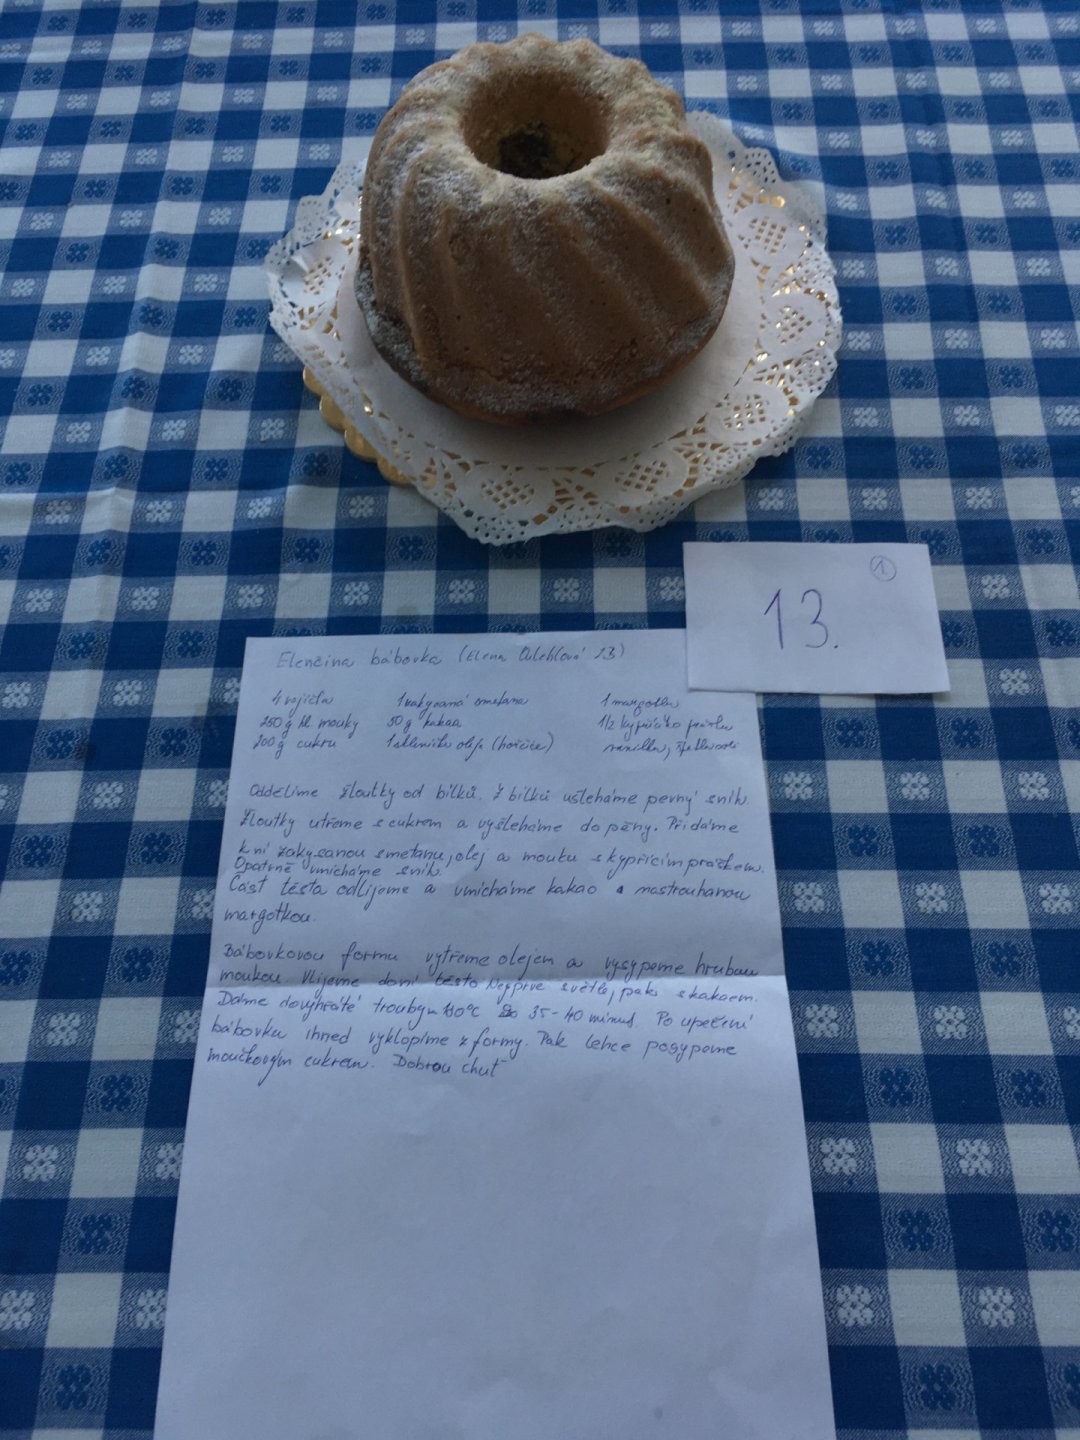 13.
1
Elenčina bábovka (Elena 13)
4 vajíčka 1 zakysaná smetana 1 margotka
250 g hl. mouky 50 g kakaa 1/2 kypřícího prášku
200 g cukru 1 sklenička oleje (hořčice) vanilka,
Oddělíme žloutky od bílků. Z bílků ušleháme pevný sníh.
Žloutky utřeme s cukrem a vyšleháme do pěny. Přidáme
k ní zakysanou smetanu, olej a mouku s kypřícím práškem.
Opatrně vmícháme sníh.
Část těsta odlijeme a vmícháme kakao a nastrouhanou
margotkou.
Bábovkovou formu vytřeme olejem a vysypeme hrubou
moukou Vlijeme do ní těsto Nejprve světlé, pak s kakaem.
Dáme do vyhřáté trouby 35-40 minut. Po upečení
bábovku ihned vyklopíme z formy. Pak lehce posypeme
moučkovým cukrem. Dobrou chuť